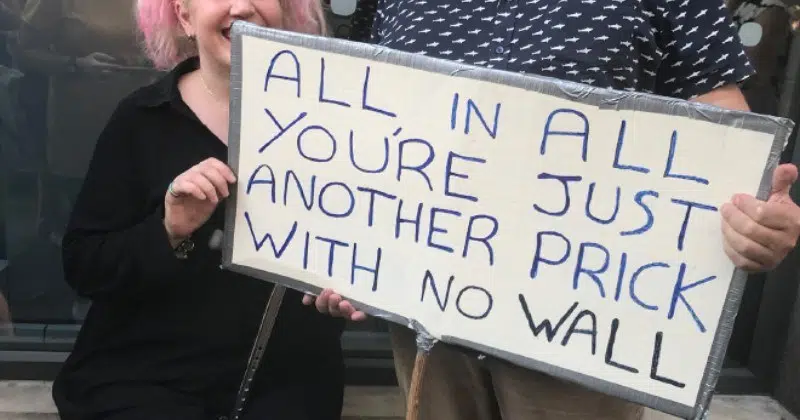 ALL IN ALL
YOU'RE JUST
ANOTHER PRICK
WITH NO WALL